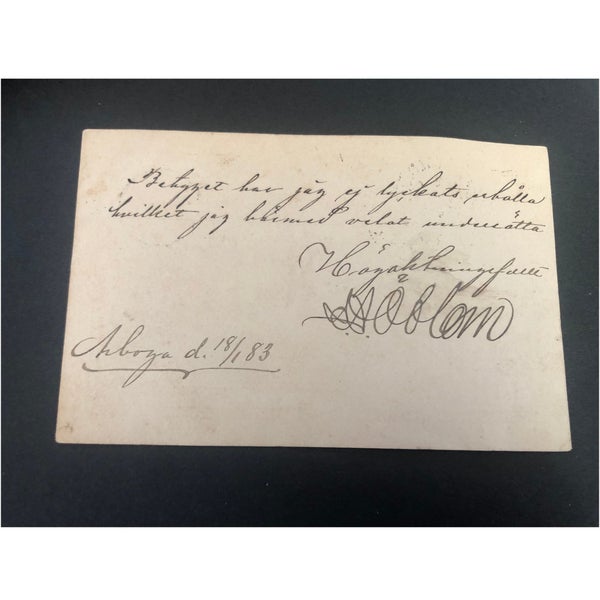 Betyget har jag ej lyckats erhålla
hvilket jag härmed velat underrätta
Högaktningsfullt
Arboga d. 18/1 83